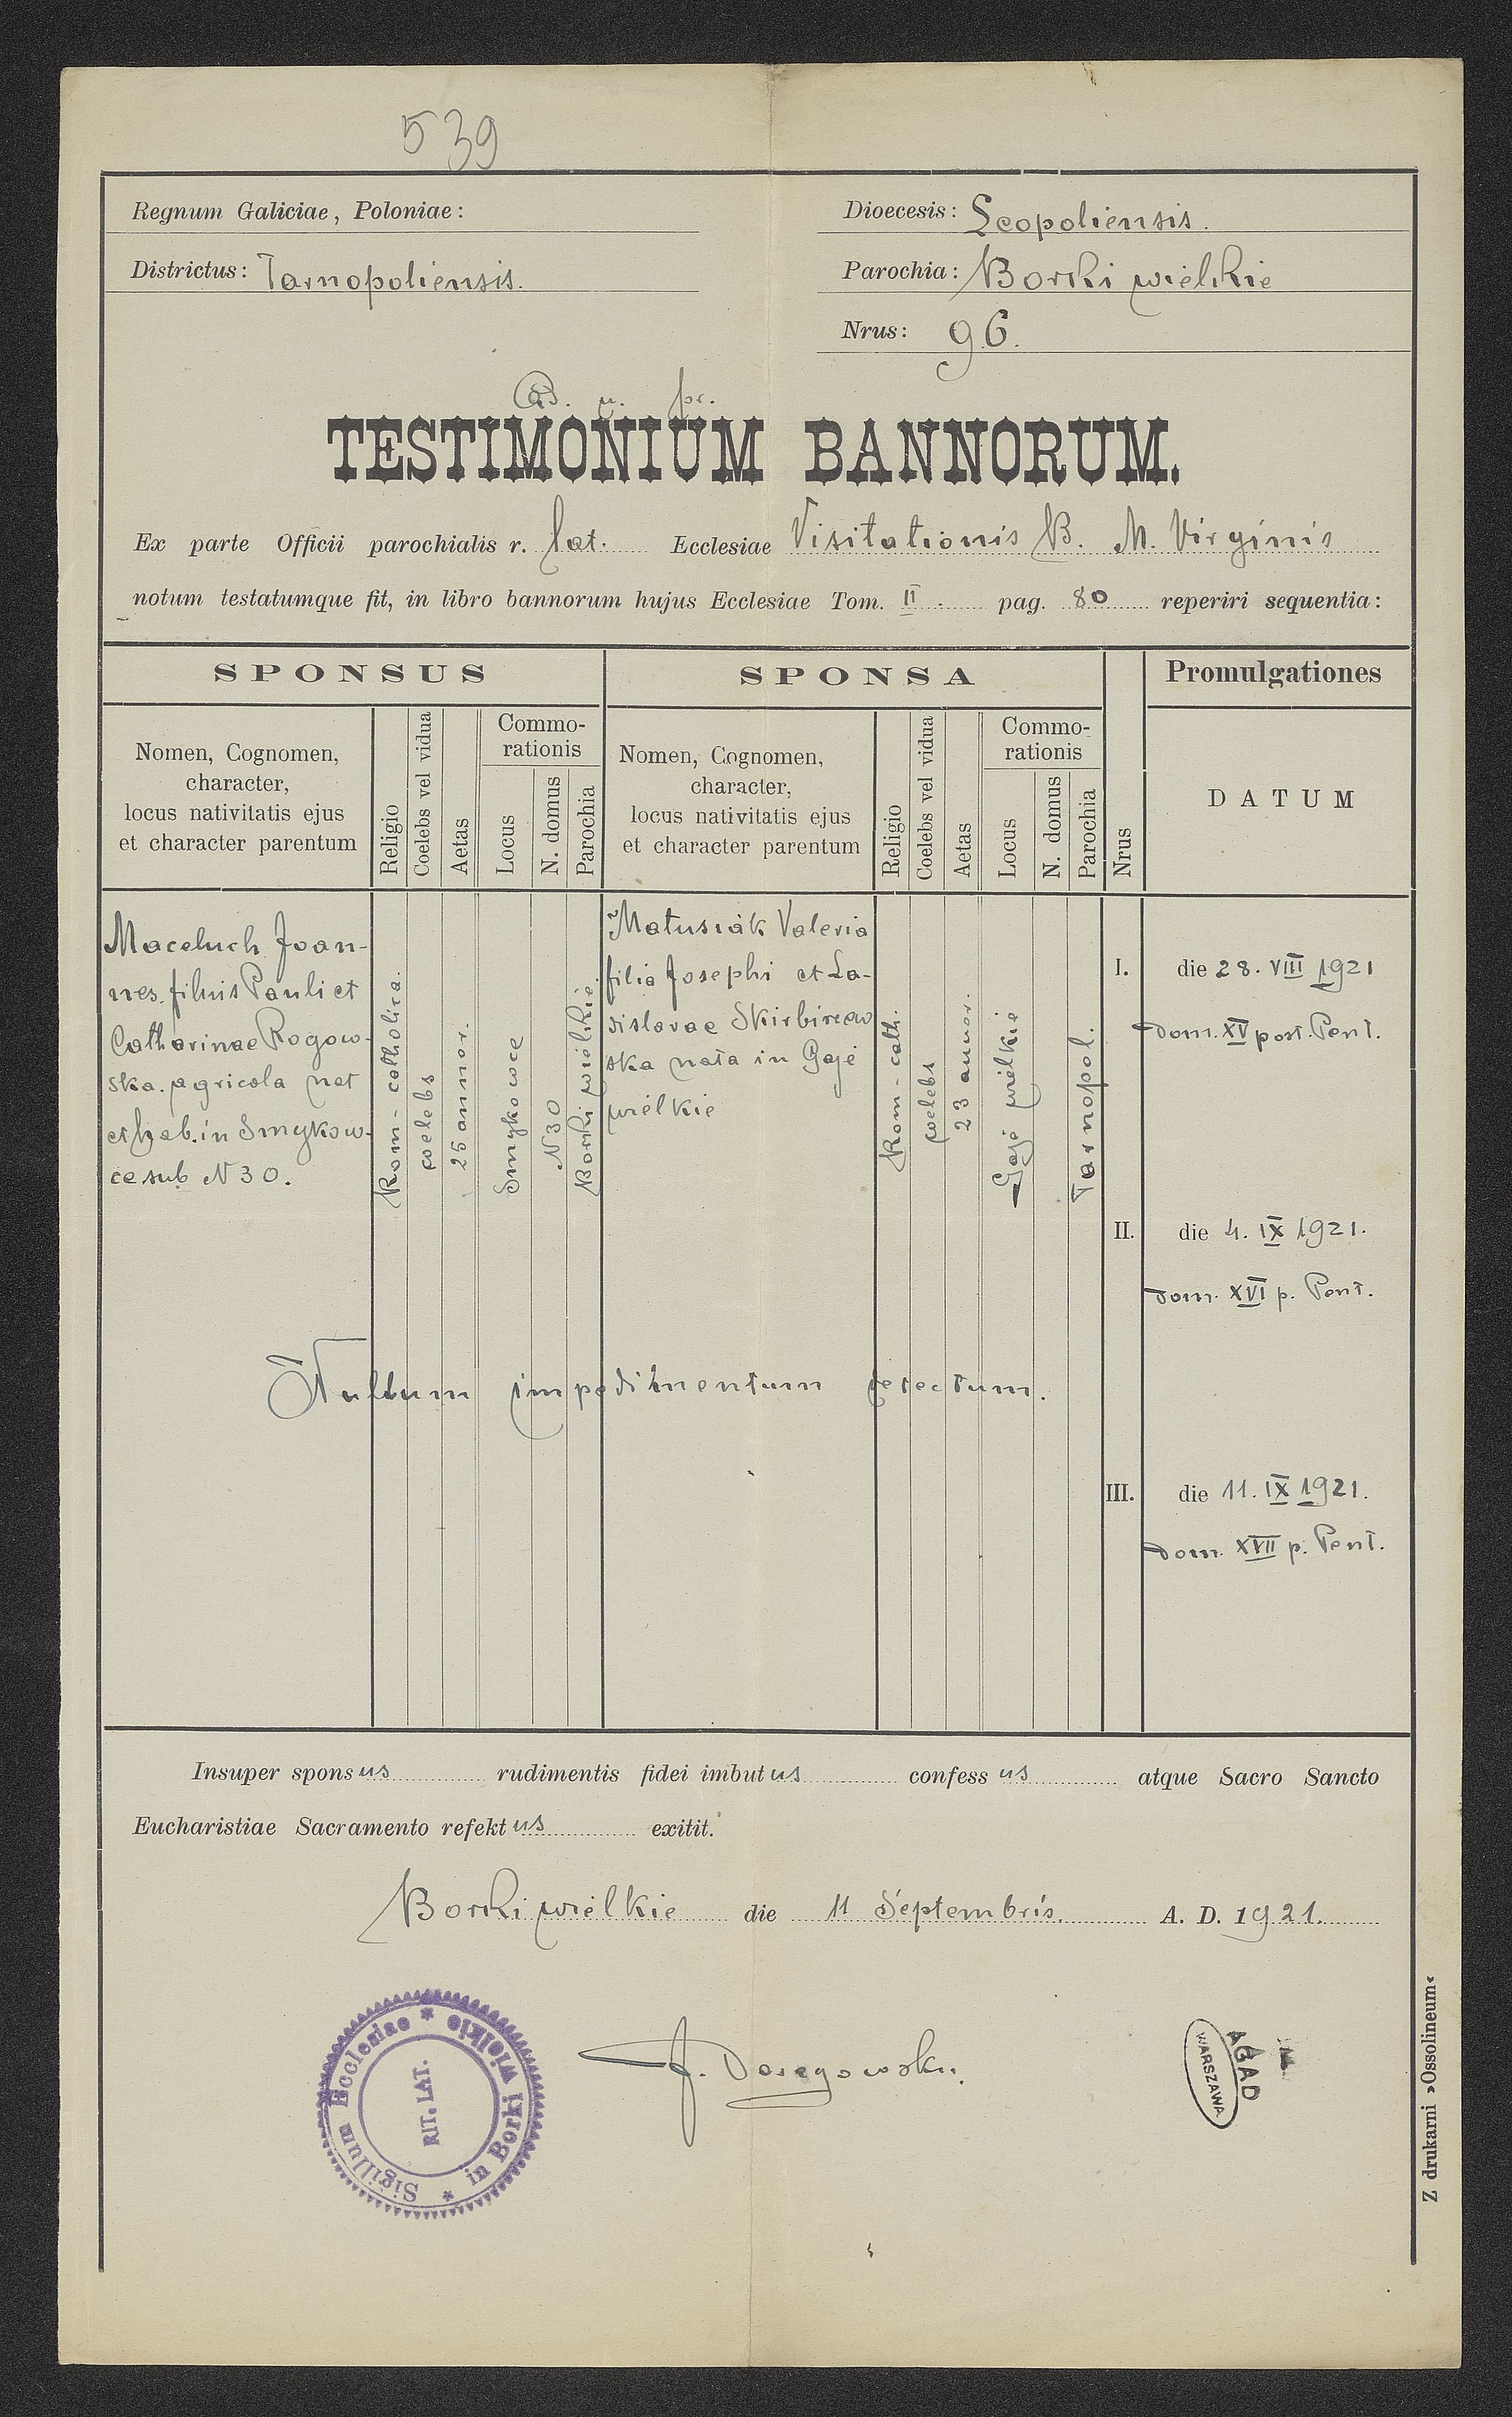 539
Regnum Galiciae, Poloniae:
Districtus: Tarnopoliensis.
Dioecesis: Leopoliensis.
Parochia: Borki wielkie
Nrus: 96.
TESTIMONIUM BANNORUM.
Ex parte Officii parochialis r. lat. Ecclesiae Visitationis B. M. Virginis
notum testatumque fit, in libro bannorum hujus Ecclesiae Tom. II. pag. 80 reperiri sequentia:
SPONSUS
Nomen, Cognomen,
character,
locus nativitatis ejus
et character parentum
Religio
Coelebs vel vidua
Aetas
Commo-
rationis
Locus
N. domus
Parochia
SPONSA
Nomen, Cognomen,
character,
locus nativitatis ejus
et character parentum
Religio
Coelebs vel vidua
Aetas
Commo-
rationis
Locus
N. domus
Parochia
Nrus
Promulgationes
DATUM
Maceluch Joan-
nes. filius Pauli et
Catharinae Rogow-
ska. agricola nat
et hab. in Smykow-
ce sub N 30.
Rom - catholica.
coelebs
25 annor.
Smykowce
N 30
Borki wielkie.
Matusiak Valeria
filia Josephi et La-
dislavae Skirbirew
ska nata in Gaje
wielkie
Rom - cath.
coelebs
23 annor.
Gaje wielkie
Tarnopol.
I. die 28. VIII 1921
Dom. XV post. Pent.
II. die 4. IX 1921.
Dom. XVI p. Pent.
Nullum impedimentum detectum.
III. die 11. IX 1921.
Dom. XVII p. Pent.
Insuper sponsus rudimentis fidei imbutus confessus atque Sacro Sancto
Eucharistiae Sacramento refektus exitit.
Borki wielkie die 11 Septembris. A. D. 1921.
Sigillum Ecclesiae * in Borki wielkie *
RIT. LAT.
AGAD
WARSZAWA
Z drukarni »Ossolineum«